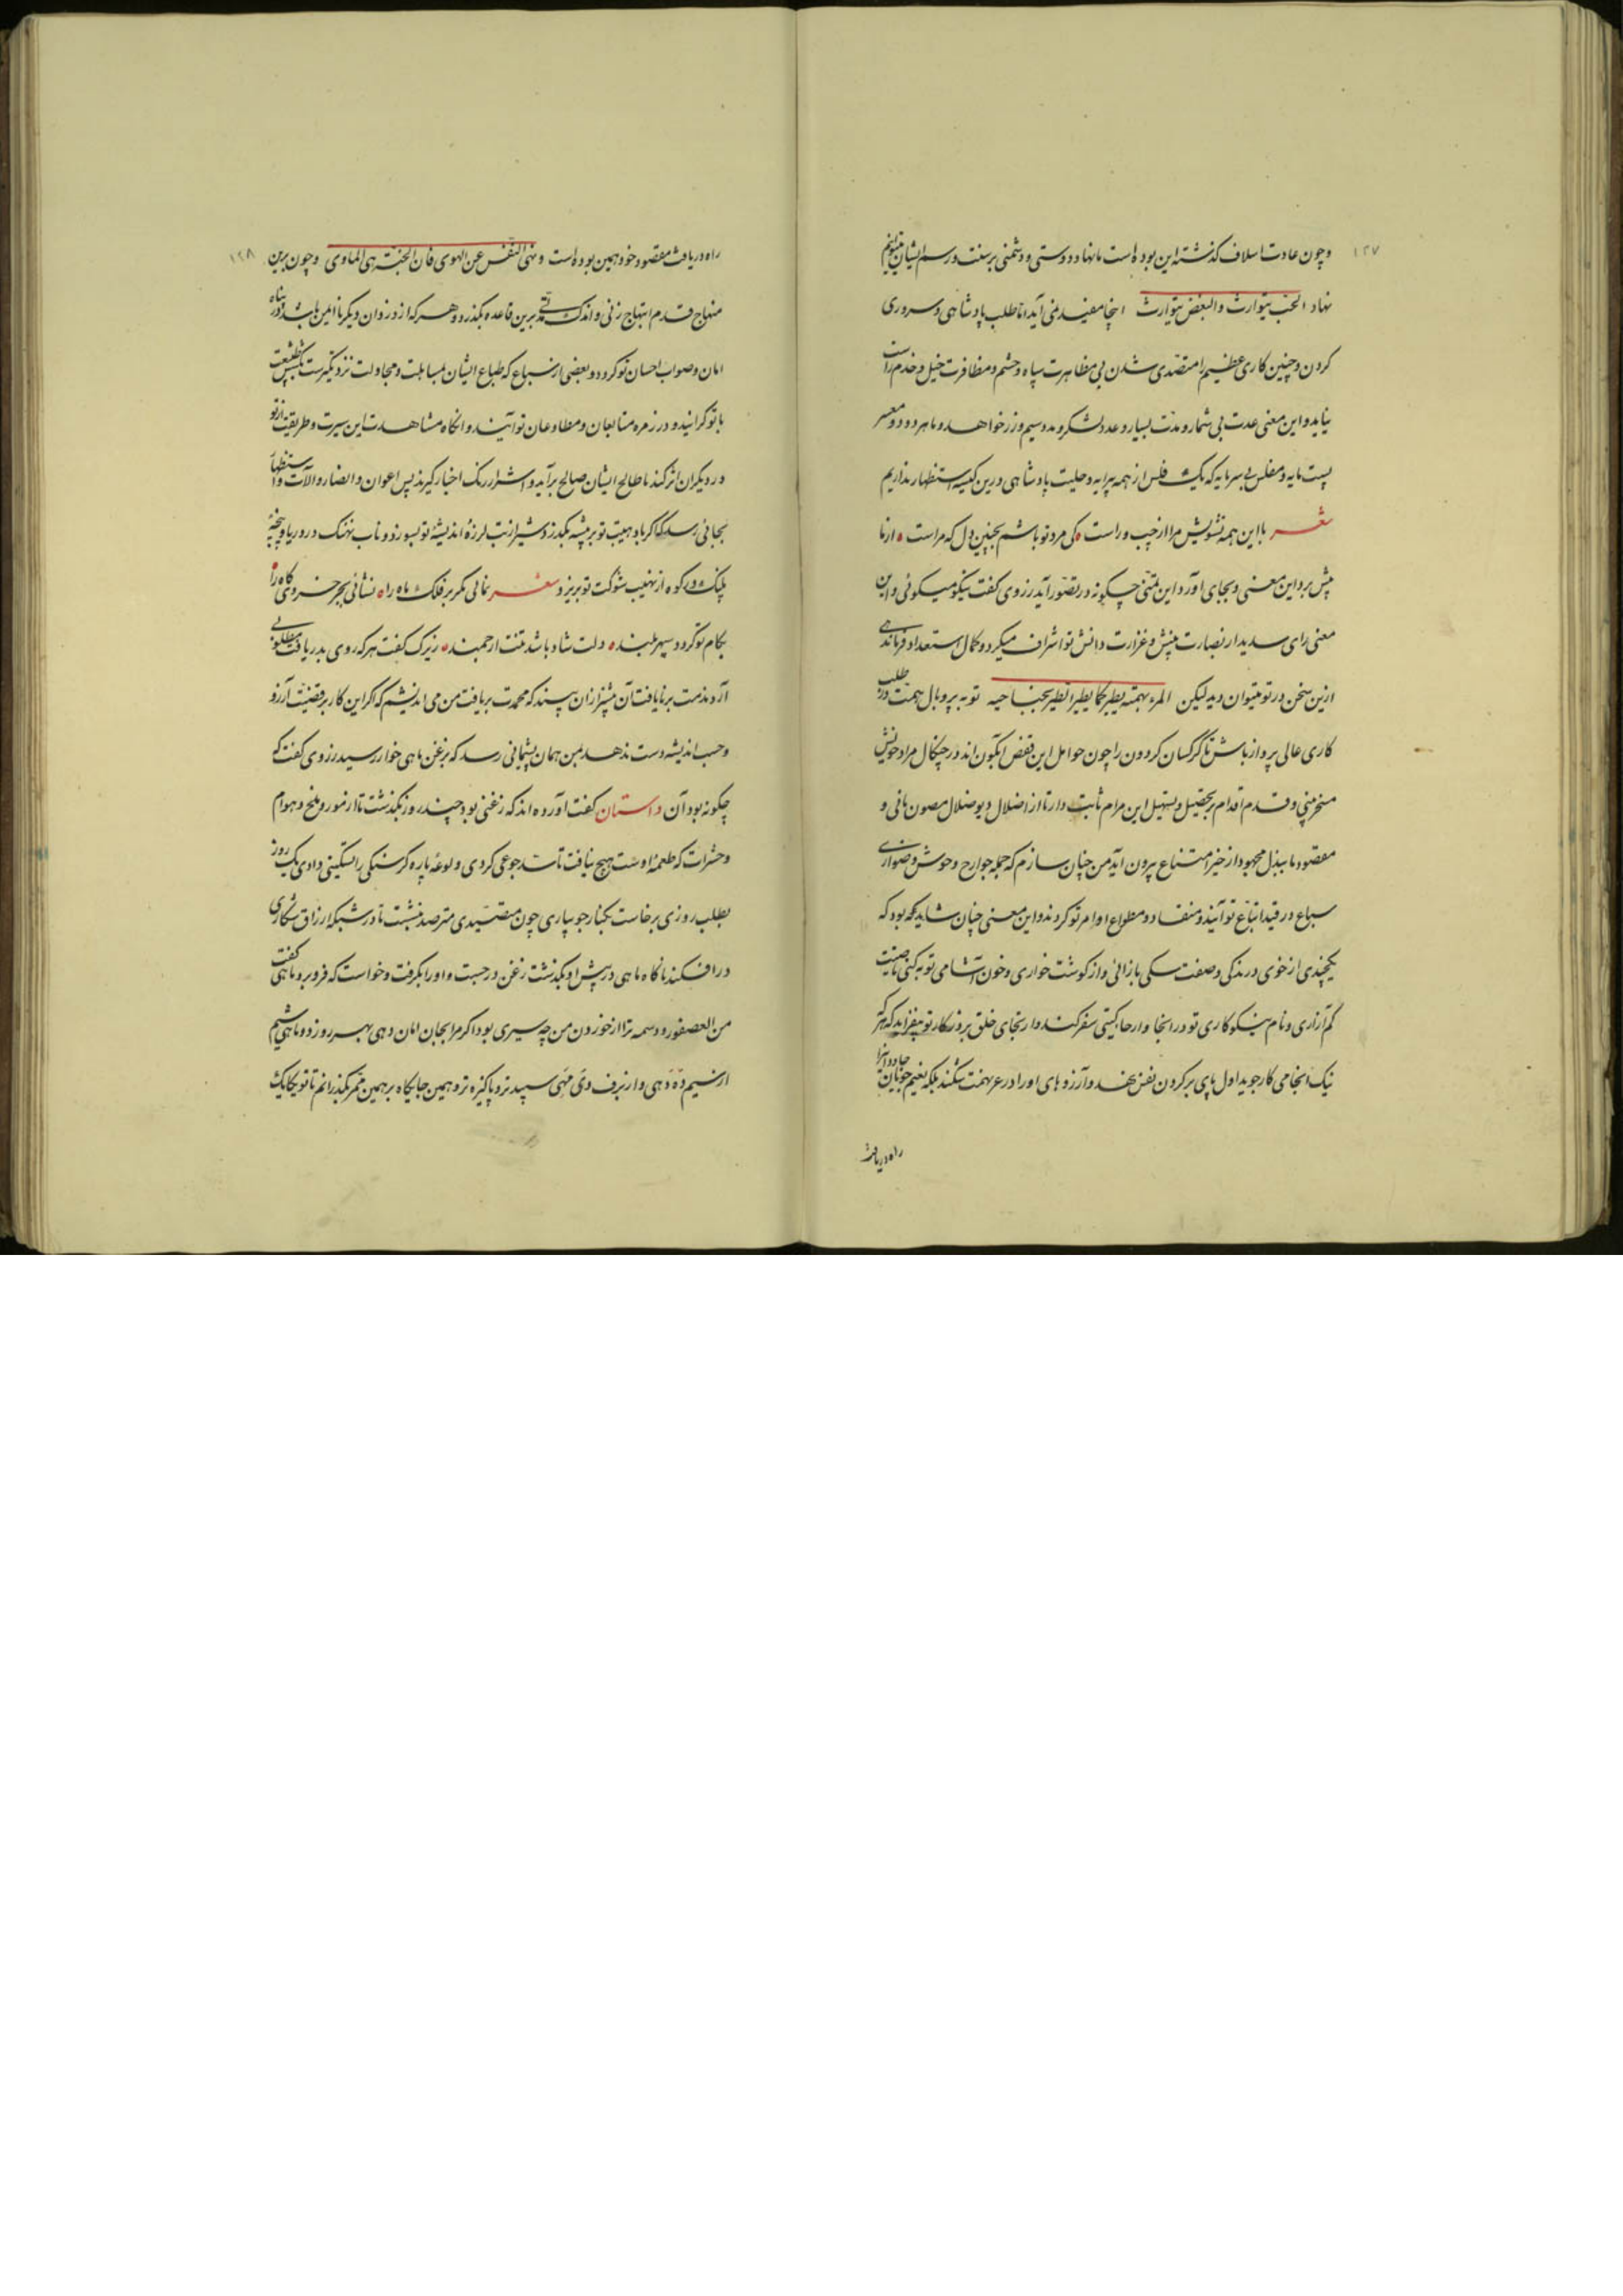 ۱۲۷
وچون عادت اسلاف کذشته این بوده است ما نهاد دوستی و دشمنی بر سنت و رسم ایشان
نهاد الحب یتوارث والبغض یتوارث اینجا مفید نمی آید اما طلب پادشاهی و سروری
کردن و چنین کاری عظیم را متصدی شدن بی مظاهرت سپاه و حشم و مظافرت خیل و خدم راست
نیاید و این معنی عدت بی شمار و مدت بسیار و عدد لشکر و مدد سیم و زر خواهد و ما هر دو دو معسر
پست مایه و مفلس بی سرمایه که یک فلس از همه پیرایه و حلیت پادشاهی درین کیسه استظهار نداریم
شعر با این همه تشویش مرا از چپ و راست کی مرد تو باشم بچنین دل که مراست از ما
پیش برد این معنی و بجای آورد این تمنی چکونه در تصور آید زروی کفت نیکو میکوئی و این
معنی رای سدید از نصارت بینش و غزارت دانش تو اشراف میکیرد و کمال استعداد فرماندهی
ازین سخن در تو میتوان دید لیکن المرء بهمته یطیر کما یطیر الطیر بجناحیه تو به پر و بال همت در طلب
کاری عالی پرواز باش تا کرکسان کردون را چون حوامل این قفص آبکون اند در چنکال مراد خویش
مسخر بینی و قدم اقدام بر تحصیل و تسهیل این مرام ثابت دار تا از اضلال دیو ضلال مصون مانی و
مقصود ما ببذل مجهود از حیز امتناع بیرون آید من چنان سازم که جمله جوارح وحوش و ضواری
سباع در قید اتباع تو آیند و منقاد و مطواع اوامر تو کردند و این معنی چنان شاید که بود که
یکچندی از خوی درندکی و صفت سکی بازآئی و از کوشت خواری و خون آشامی توبه کنی تا صیت
کم آزاری و نام نیکوکاری تو در انحا و ارجاء کیتی سفر کند و ارتجای خلق بروزکار تو بیفزاید که هر که
نیک انجامی کار جوید اول پای بر کردن نفس نهد و آرزوهای او را در عزیمت شکند بلکه نعیم جویان جاودانرا
راه دریافت
۱۲۸
راه دریافت مقصود خود همین بوده است و نهی النفس عن الهوی فان الجنة هی الماوی وچون برین
منهاج قدم ابتهاج زنی و اندک مدتی برین قاعده بکذرد و هر که از ددان دیکر ناایمن باشد در پناه
امان و صواب احسان تو کردد و بعضی از سباع که طباع ایشان بمساهلت و مجاملت نزدیکترست
با تو کرایند و در زمره متابعان و مطاوعان تو آیند و آنکاه مشاهدت این سیرت و طریقت از تو
در دیکران اثر کند تا طالح ایشان صالح برآید و اشرار رنک اخیار کیرند پس اعوان و انصار و آلات و استظهار
بجائی رسد که اکر باد هیبت تو بر بیشه بکذرد شیر از تب لرزه اندیشه تو بسوزد و ناب نهنک در دریا و پنجه
پلنک در کوه از نهیب شوکت تو بریزد شعر نمائی مکر بر فلک ماه را نشانی بجز خسروی کاه را
بکام تو کردد سپهر بلند دلت شاد باشد تنت ارجمند زیرک کفت هر که روی بدریافت مطلوبی
آرد مذمت بر نایافت آن بیشتر از آن بیند که محمدت بر یافت من می اندیشم که اکر این کار بر قضیت آرزو
و حسب اندیشه دست ندهد بمن همان پشیمانی رسد که بزغن ماهی خوار رسید زروی کفت که
چکونه بود آن داستان کفت آورده اند که زغنی بود چند روز بکذشت تا از مور و ملخ و هوام
و حشرات که طعمه او ست هیچ نیافت تا سد جوعی کردی و لوعه پاره کرسنکی را تسکینی دادی یک روز
بطلب روزی برخاست بکنار جویباری چون متصیدی مترصد بنشست تا در شبکه ارزاق شکاری
درافکند ناکاه ماهی در پیش او بکذشت زغن درجست و او را بکرفت و خواست که فرو برد ماهی کفت
من العصفور و دسمه ترا از خوردن من چه سیری بود اکر مرا بجان امان دهی بهر روز ده ماهی شیم
از سیم ده دهی و از برف دی مهی سپید تر و پاکیزه تر و همین جایکاه بر همین ممر بکذرانم تا تو یکایک